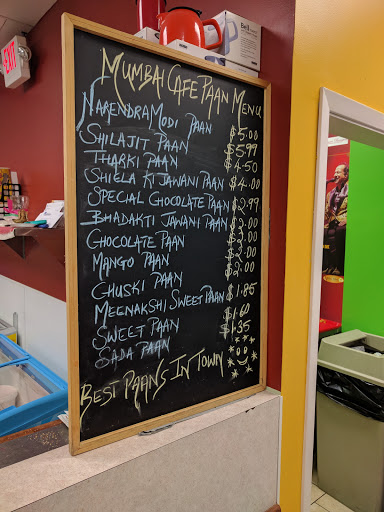 EXIT
MUMBAI CAFE PAAN MENU
NARENDRA MODI PAAN $5.00
SHILAJIT PAAN $5.99
THARKI PAAN $4.50
SHIELA KI JAWANI PAAN $4.00
SPECIAL CHOCOLATE PAAN $2.99
BHADAKTI JAWANI PAAN $3.00
CHOCOLATE PAAN $2.00
MANGO PAAN $2.00
CHUSKI PAAN $2.00
MEENAKSHI SWEET PAAN $1.85
SWEET PAAN $1.60
SADA PAAN $1.35
BEST PAANS IN TOWN